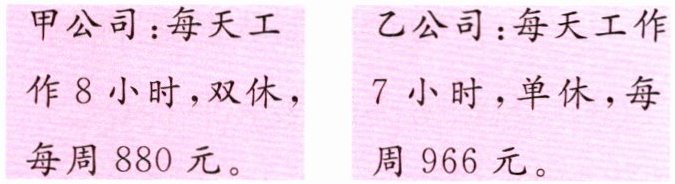 甲公司:每天工
作 8 小时,双休,
每周 880 元。
乙公司:每天工作
7 小时,单休,每
周 966 元。